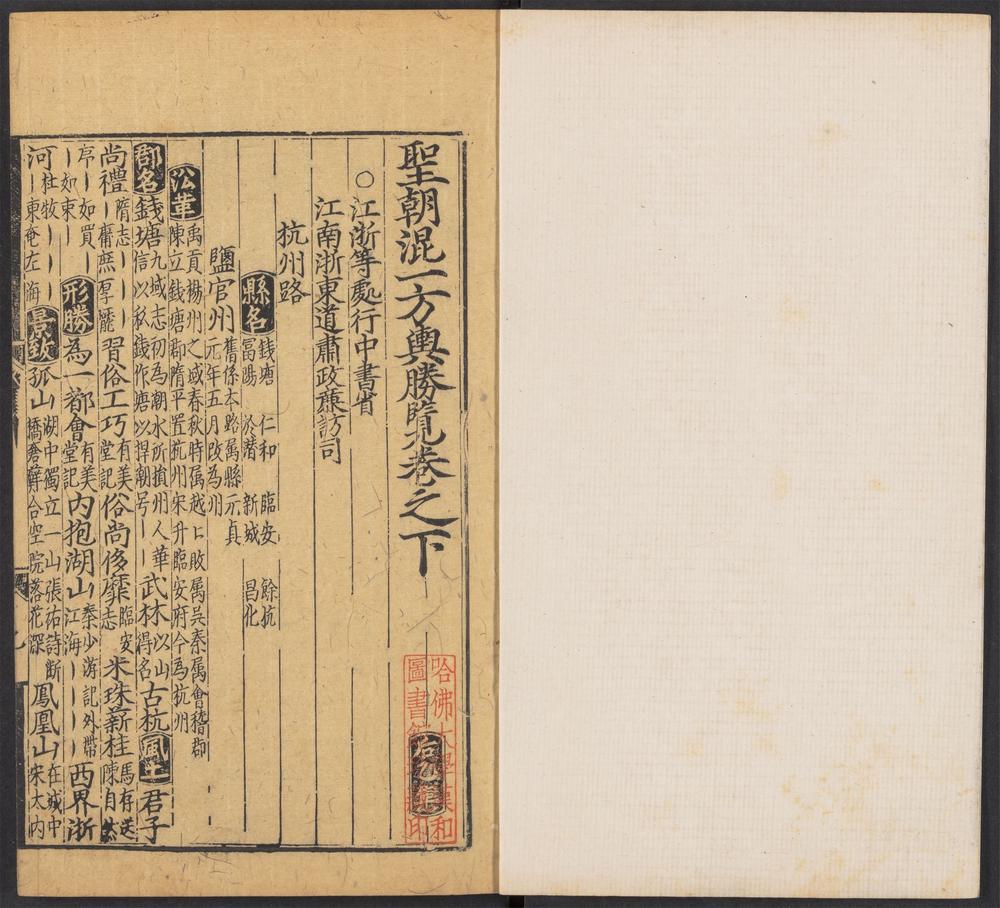 聖朝混一方輿勝覽卷之下
哈佛大學漢和
圖書館
印
○江浙等處行中書省
江南浙東道肅政廉訪司
杭州路
縣名
錢塘 仁和 臨安 餘杭
富陽 於潛 新城 昌化
鹽官州
舊係本路属縣元貞
元年五月改為州
沿革
禹貢揚州之域春秋時属越〻敗属吳秦属會稽郡
陳立錢塘郡隋平置杭州宋升臨安府今為杭州
郡名 錢塘 九域志初為潮水所損州人華
信以私錢作塘以捍潮号丨 武林 以山
得名 古杭 風土 君子
尚禮 隋志丨丨丨
庸庶厚龐 習俗工巧 有美
堂記 俗尚侈靡 臨安
志 米珠薪桂 馬存送
陳自然
序丨如買丨
丨如束丨 形勝 為一都會 有美
堂記 內抱湖山 秦少游記外帶
江海丨丨丨丨 西界浙
河 杜牧丨丨丨
丨東奄左海 景致 孤山 湖中獨立一山張祐詩断
橋荒蘚合空院落花深 鳳凰山 在城中
宋大内